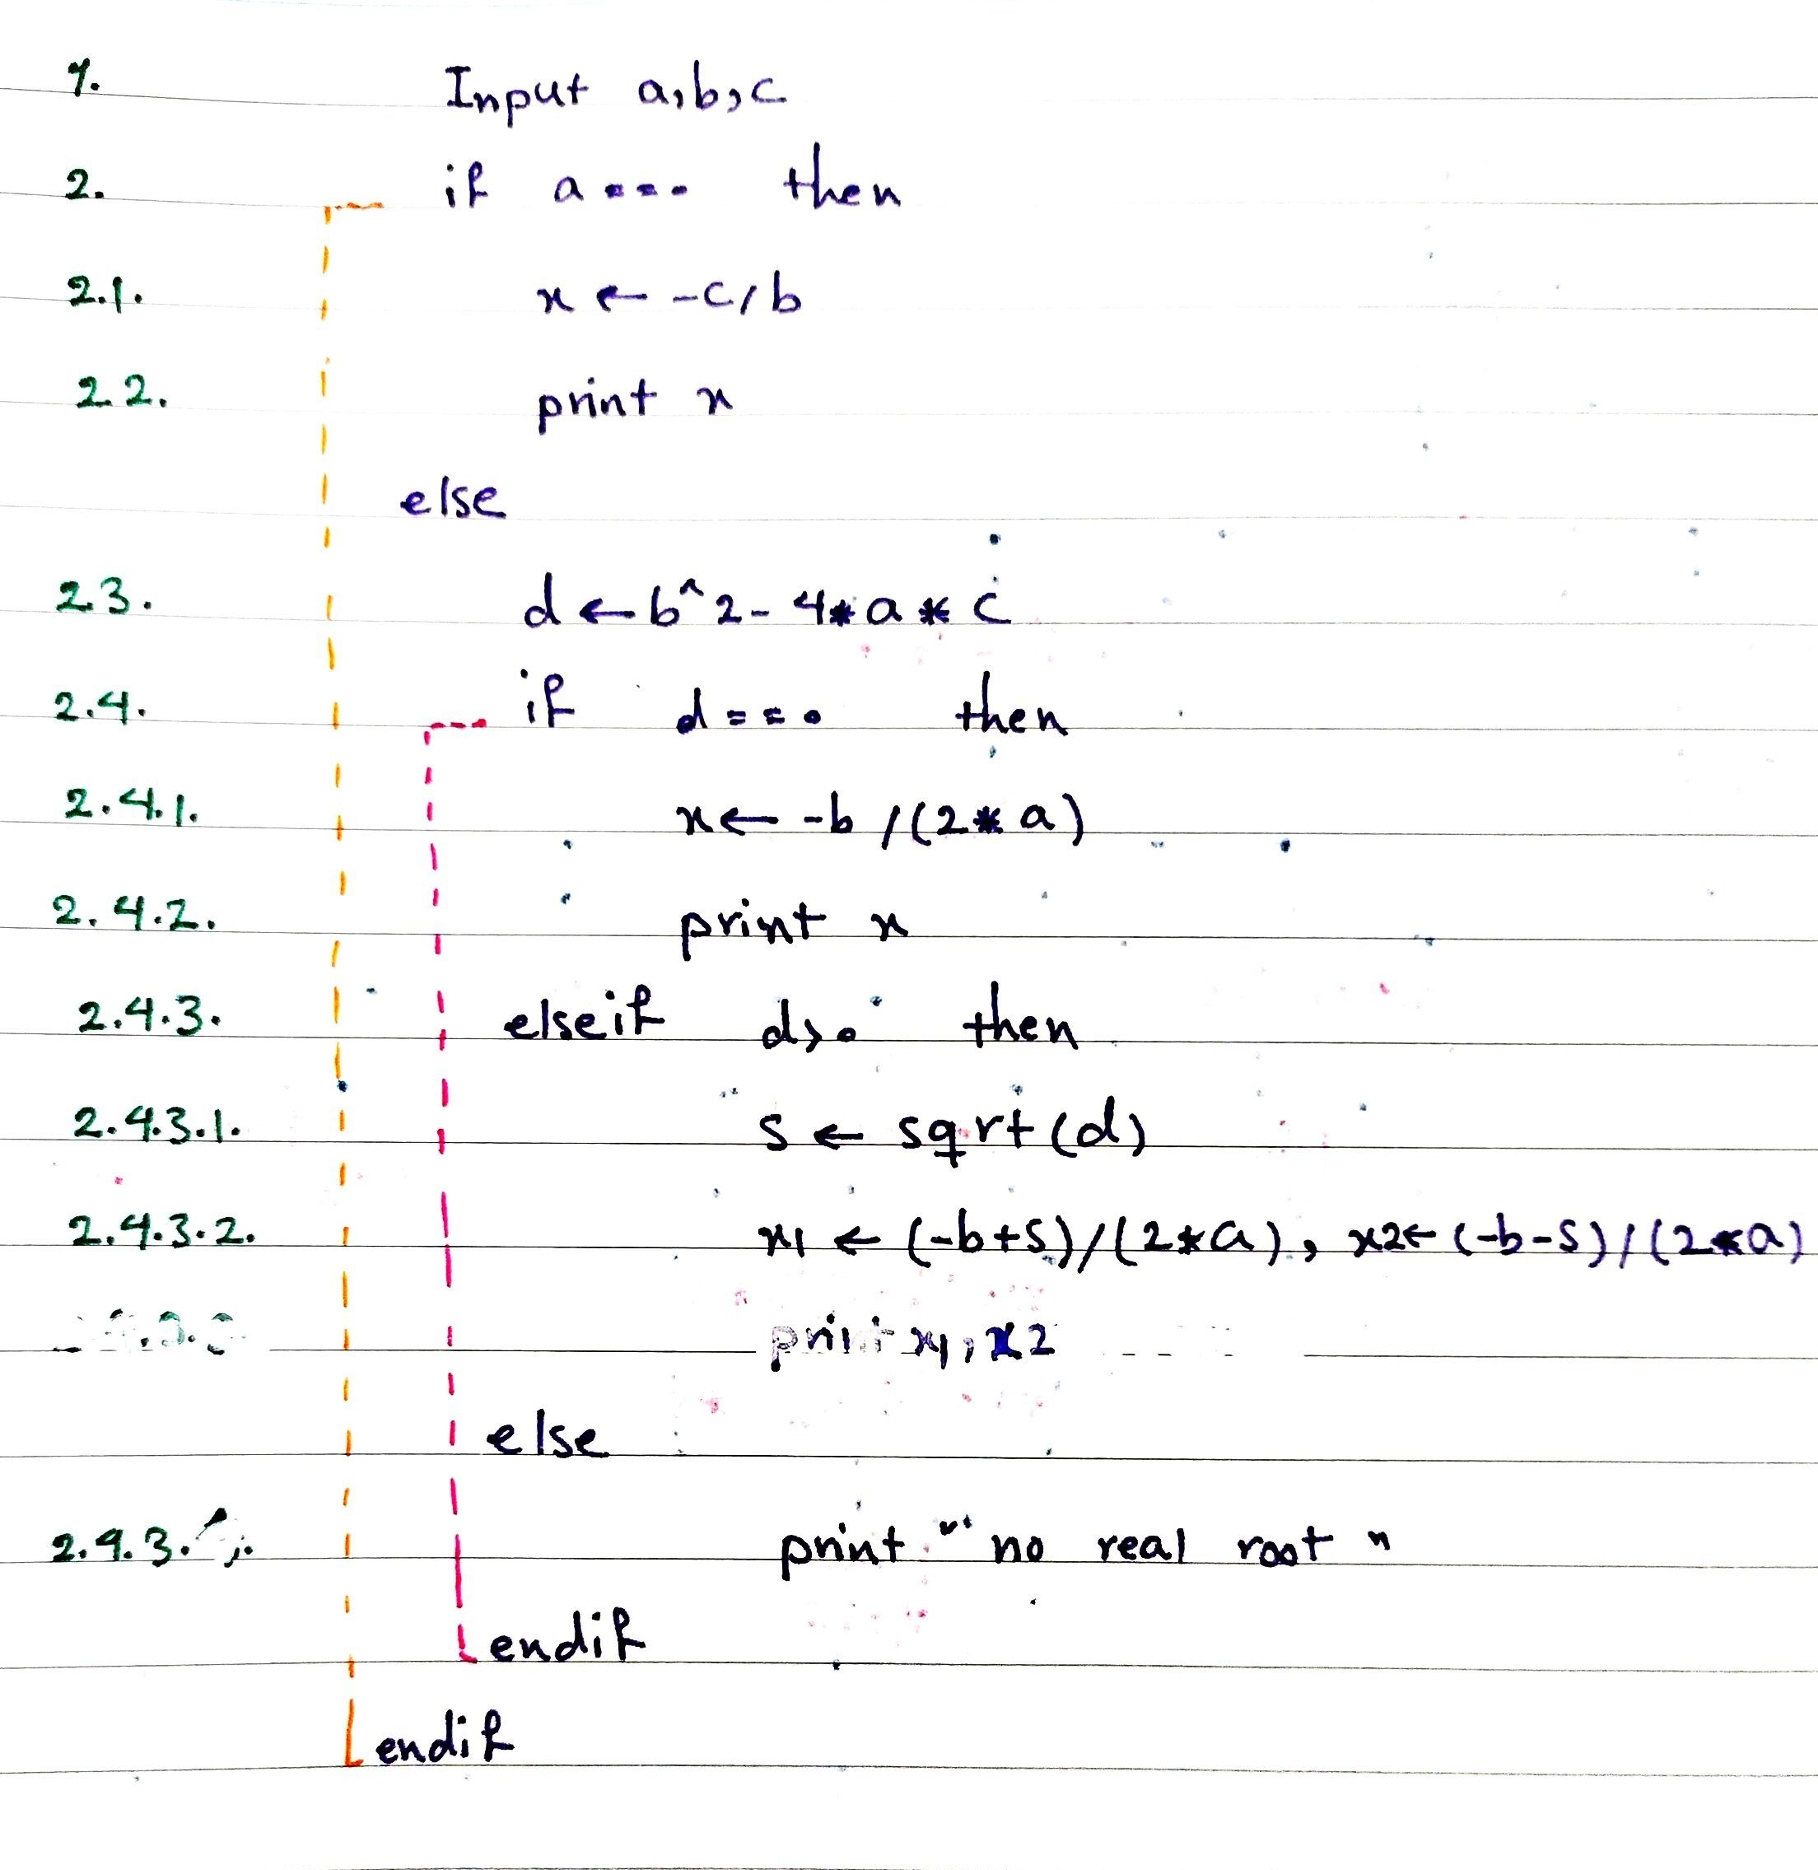 1. Input a,b,c
2. if a==0 then
2.1. x ← -c/b
2.2. print x
else
2.3. d ← b^2-4*a*c
2.4. if d==0 then
2.4.1. x ← -b/(2*a)
2.4.2. print x
2.4.3. elseif d>0 then
2.4.3.1. s ← sqrt(d)
2.4.3.2. x1 ← (-b+s)/(2*a), x2 ← (-b-s)/(2*a)
print x1, x2
else
2.4.3. print "no real root"
endif
endif